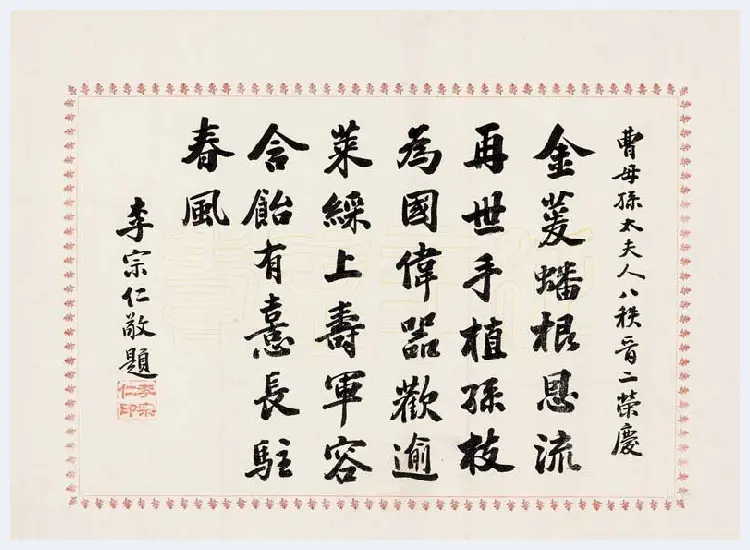 曹母孫太夫人八秩晉二榮慶
金萲蟠根恩流
再世手植孫枝
為國偉器歡逾
萊綵上壽軍容
含飴有憙長駐
春風
李宗仁敬題
李宗仁印